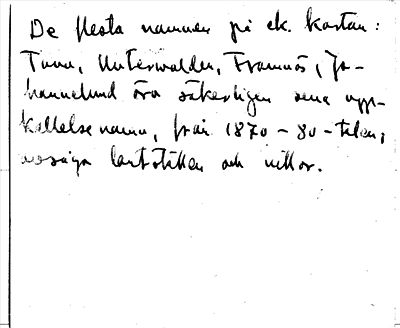 De flesta namnen på ek. kartan:
Tuna, Unterwalden, Framnäs, Jo-
hannelund äro säkerligen sena upp-
kallelsenamn, från 1870-80-talen,
lantställen och villor.